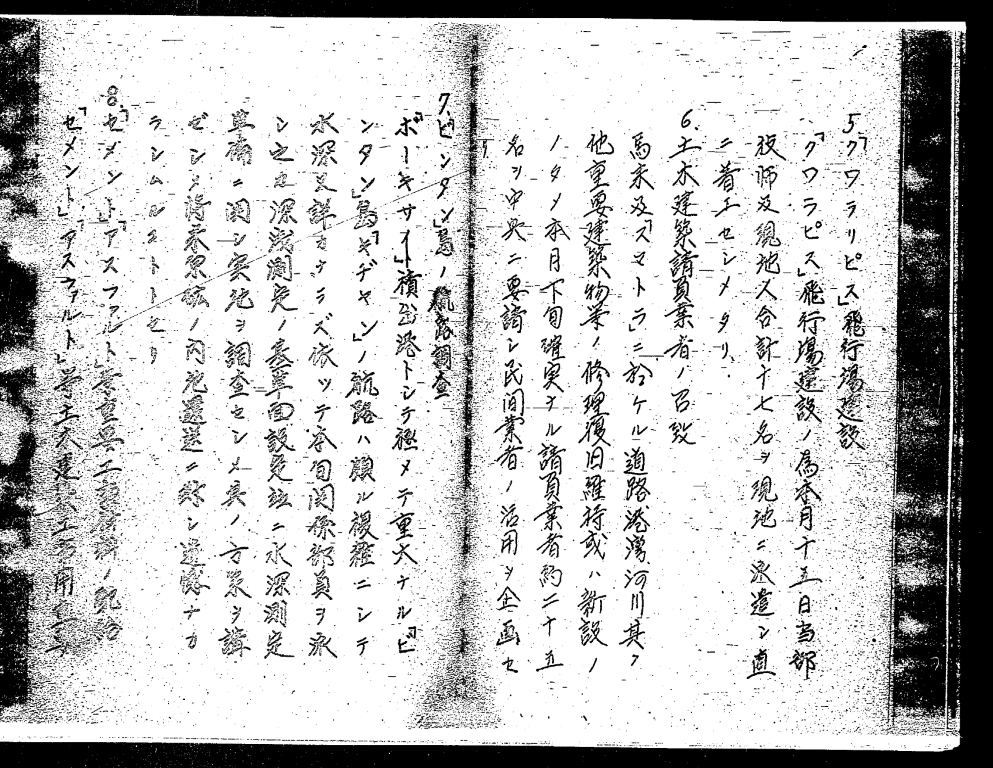 5.「クワラリピス」飛行場建設
「クワラピス」飛行場建設ノ為本月十五日当部
技師及現地人合計十七名ヲ現地ニ派遣シ直
ニ着工セシメタリ
6.土木建築請負業者ノ召致
馬来及「スマトラ」ニ於ケル道路港湾河川其ノ
他重要建築物等ノ修理復旧維持或ハ新設ノ
ノタメ本月下旬確実ナル請負業者約二十五
名ヲ中央ニ要請シ民間業者ノ活用ヲ企画セ
リ
7.「ビンタン」島ノ航路調査
「ボーキサイト」積出港トシテ極メテ重大ナル「ビ
ンタン」島「キヂヤン」ノ航路ハ頗ル複雑ニシテ
水深又詳カナラズ依ツテ本旬関係部員ヲ派
シ之ガ深浅測定ノ基準面設定並ニ水深測定
準備ニ関シ実地ヲ調査セシメ其ノ方策ヲ講
ゼシメ将来原鉱ノ内地還送ニ対シ遺憾ナカ
ラシムルコトトセリ
8.「セメント」「アスファルト」等重要工事材料ノ配給
「セメント」「アスファルト」等土木建築工事用